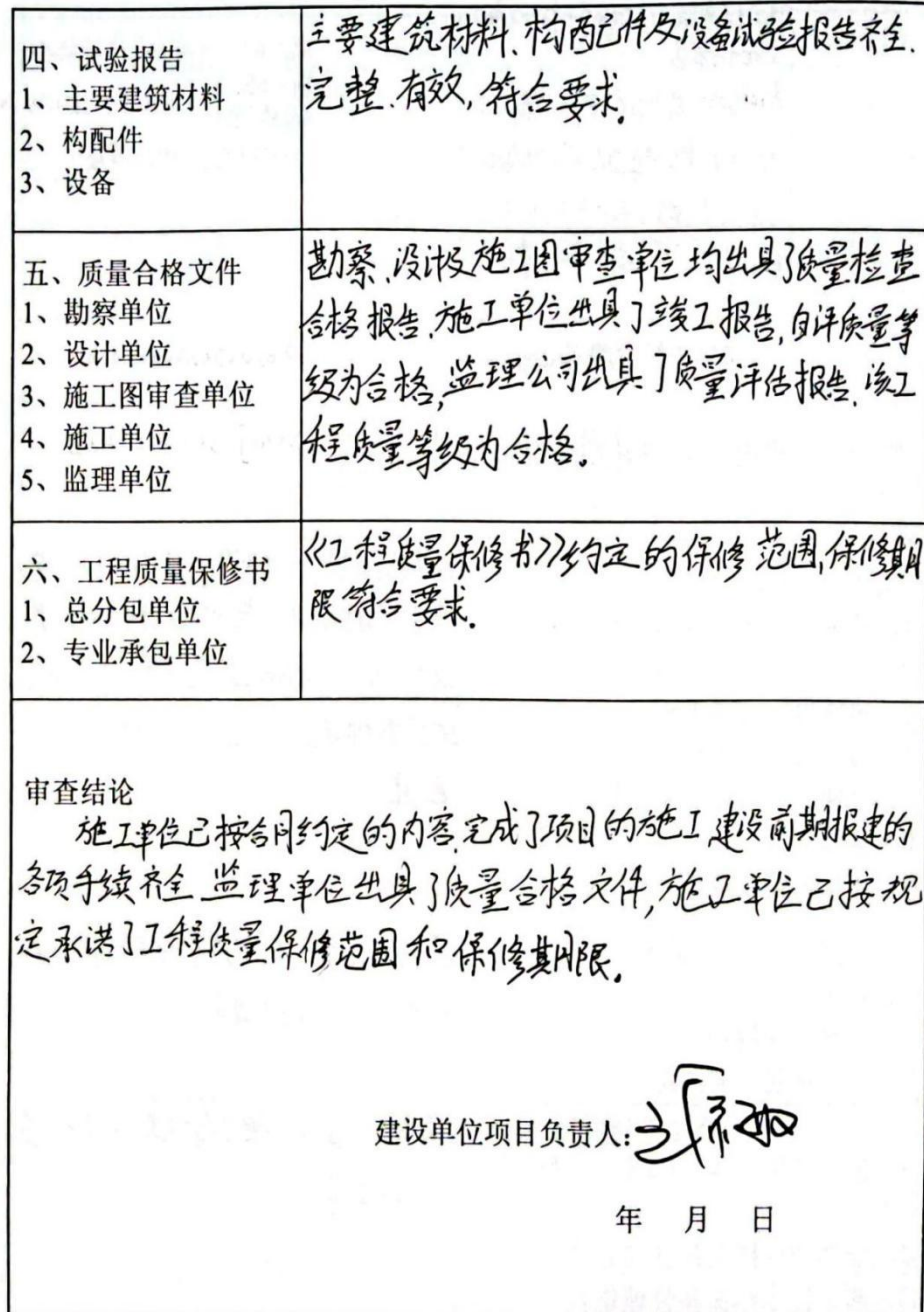 四、试验报告
1、主要建筑材料
2、构配件
3、设备
主要建筑材料、构配件及设备试验报告齐全、
完整、有效,符合要求。
五、质量合格文件
1、勘察单位
2、设计单位
3、施工图审查单位
4、施工单位
5、监理单位
勘察、设计及施工图审查单位均出具了质量检查
合格报告,施工单位出具了竣工报告,自评质量等
级为合格,监理公司出具了质量评估报告,该工
程质量等级为合格。
六、工程质量保修书
1、总分包单位
2、专业承包单位
《工程质量保修书》约定的保修范围,保修期
限符合要求。
审查结论
施工单位已按合同约定的内容完成了项目的施工,建设前期报建的
各项手续齐全,监理单位出具了质量合格文件,施工单位已按规
定承诺了工程质量保修范围和保修期限。
建设单位项目负责人:
年 月 日